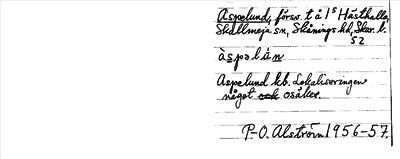 Aspelund, försv. t å 1⁵ Hästhalla,
Skallmeja sn, Skånings hd, Skar. l.
52
àspəlún
Aspelund kb. Lokaliseringen
något och osäker.
P-O. Alström 1956-57.